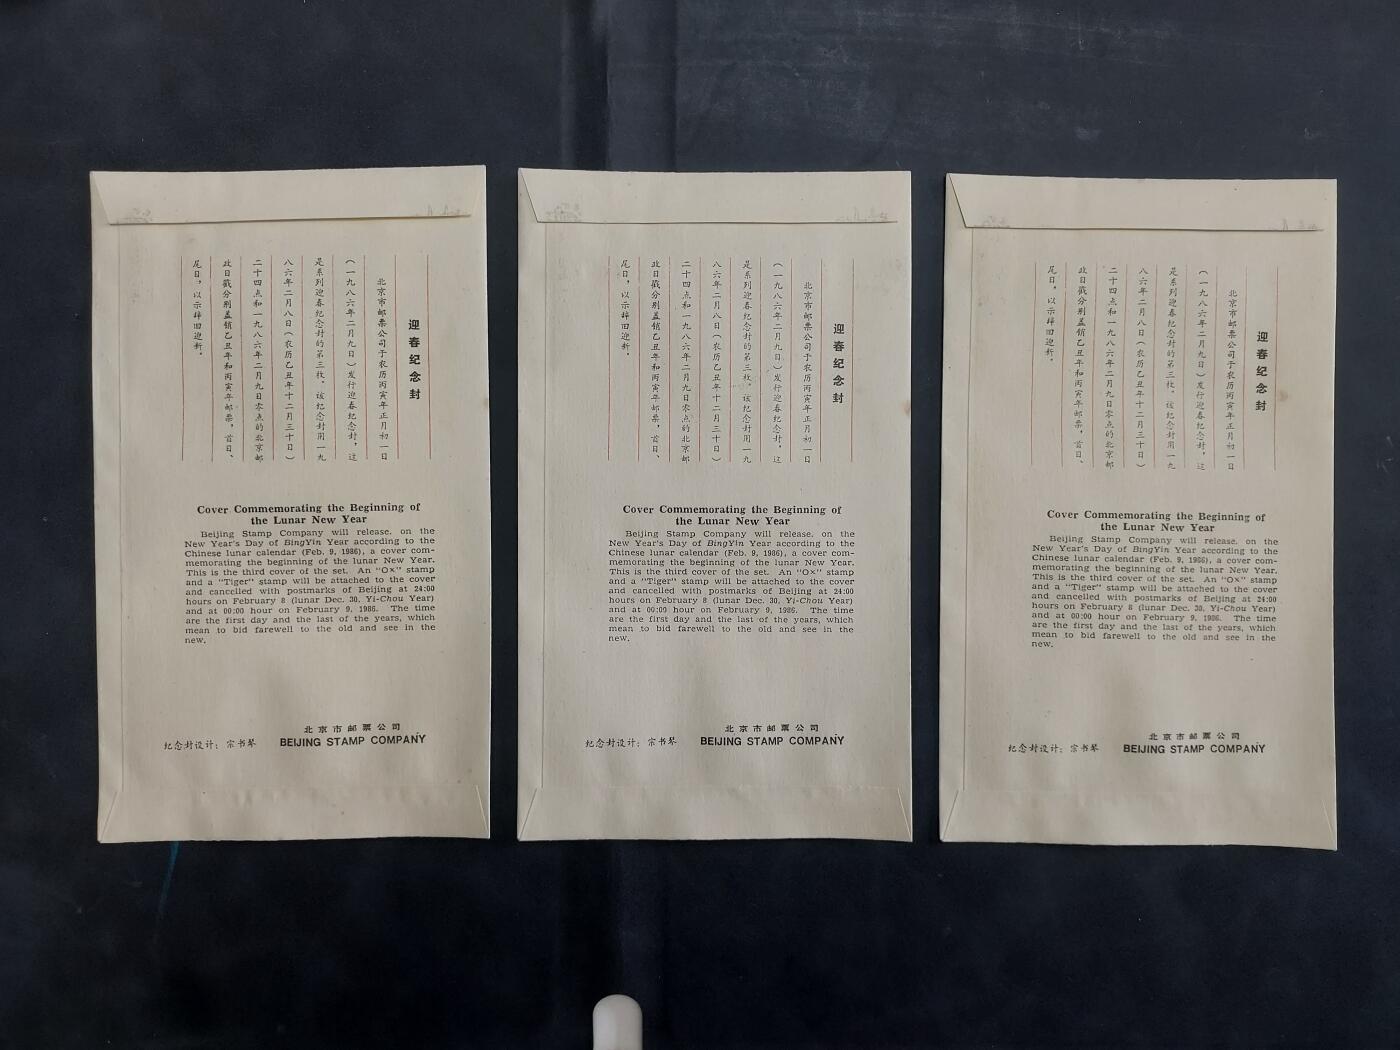 迎春纪念封
北京市邮票公司于农历丙寅年正月初一日
(一九八六年二月九日)发行迎春纪念封,这
是系列迎春纪念封的第三枚。该纪念封用一九
八六年二月八日(农历乙丑年十二月三十日)
二十四点和一九八六年二月九日零点的北京邮
政日戳分别盖销乙丑年和丙寅年邮票,首日、
尾日,以示辞旧迎新。
Cover Commemorating the Beginning of
the Lunar New Year
Beijing Stamp Company will release. on the
New Year's Day of BingYin Year according to the
Chinese lunar calendar (Feb. 9, 1986), a cover com-
memorating the beginning of the lunar New Year.
This is the third cover of the set. An "Ox" stamp
and a "Tiger" stamp will be attached to the cover
and cancelled with postmarks of Beijing at 24:00
hours on February 8 (lunar Dec. 30, Yi-Chou Year)
and at 00:00 hour on February 9, 1986. The time
are the first day and the last of the years, which
mean to bid farewell to the old and see in the
new.
北京市邮票公司
纪念封设计:宗书琴 BEIJING STAMP COMPANY
迎春纪念封
北京市邮票公司于农历丙寅年正月初一日
(一九八六年二月九日)发行迎春纪念封,这
是系列迎春纪念封的第三枚。该纪念封用一九
八六年二月八日(农历乙丑年十二月三十日)
二十四点和一九八六年二月九日零点的北京邮
政日戳分别盖销乙丑年和丙寅年邮票,首日、
尾日,以示辞旧迎新。
Cover Commemorating the Beginning of
the Lunar New Year
Beijing Stamp Company will release. on the
New Year's Day of BingYin Year according to the
Chinese lunar calendar (Feb. 9, 1986), a cover com-
memorating the beginning of the lunar New Year.
This is the third cover of the set. An "Ox" stamp
and a "Tiger" stamp will be attached to the cover
and cancelled with postmarks of Beijing at 24:00
hours on February 8 (lunar Dec. 30, Yi-Chou Year)
and at 00:00 hour on February 9, 1986. The time
are the first day and the last of the years, which
mean to bid farewell to the old and see in the
new.
北京市邮票公司
纪念封设计:宗书琴 BEIJING STAMP COMPANY
迎春纪念封
北京市邮票公司于农历丙寅年正月初一日
(一九八六年二月九日)发行迎春纪念封,这
是系列迎春纪念封的第三枚。该纪念封用一九
八六年二月八日(农历乙丑年十二月三十日)
二十四点和一九八六年二月九日零点的北京邮
政日戳分别盖销乙丑年和丙寅年邮票,首日、
尾日,以示辞旧迎新。
Cover Commemorating the Beginning of
the Lunar New Year
Beijing Stamp Company will release. on the
New Year's Day of BingYin Year according to the
Chinese lunar calendar (Feb. 9, 1986), a cover com-
memorating the beginning of the lunar New Year.
This is the third cover of the set. An "Ox" stamp
and a "Tiger" stamp will be attached to the cover
and cancelled with postmarks of Beijing at 24:00
hours on February 8 (lunar Dec. 30, Yi-Chou Year)
and at 00:00 hour on February 9, 1986. The time
are the first day and the last of the years, which
mean to bid farewell to the old and see in the
new.
北京市邮票公司
纪念封设计:宗书琴 BEIJING STAMP COMPANY